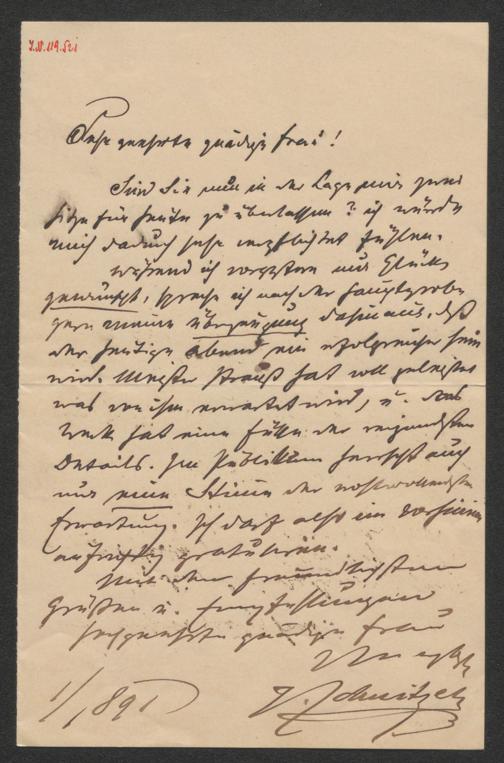 I.N. 119.521
Sehr geehrte gnädige Frau!
Sind Sie nun in der Lage mir zwei
Sitze für heute zu überlassen? ich würde
mich dadurch sehr verpflichtet fühlen.
Während ich vorgestern nur Glück
gewünscht, spreche ich nach der Hauptprobe
gern meine Überzeugung dahin aus, daß
der heutige Abend ein erfolgreicher sein
wird. Meister Strauß hat voll geleistet
was von ihm erwartet wird, u. das
Werk hat eine Fülle der reizendsten
Details. Im Publikum herrscht auch
nur eine Stimme der
Erwartung. Ich darf also im vorhinein
aufrichtig gratuliren.
Mit den freundlichsten
Grüßen u. Empfehlungen
hochgeehrte gnädige Frau
Ihr
1/1 891